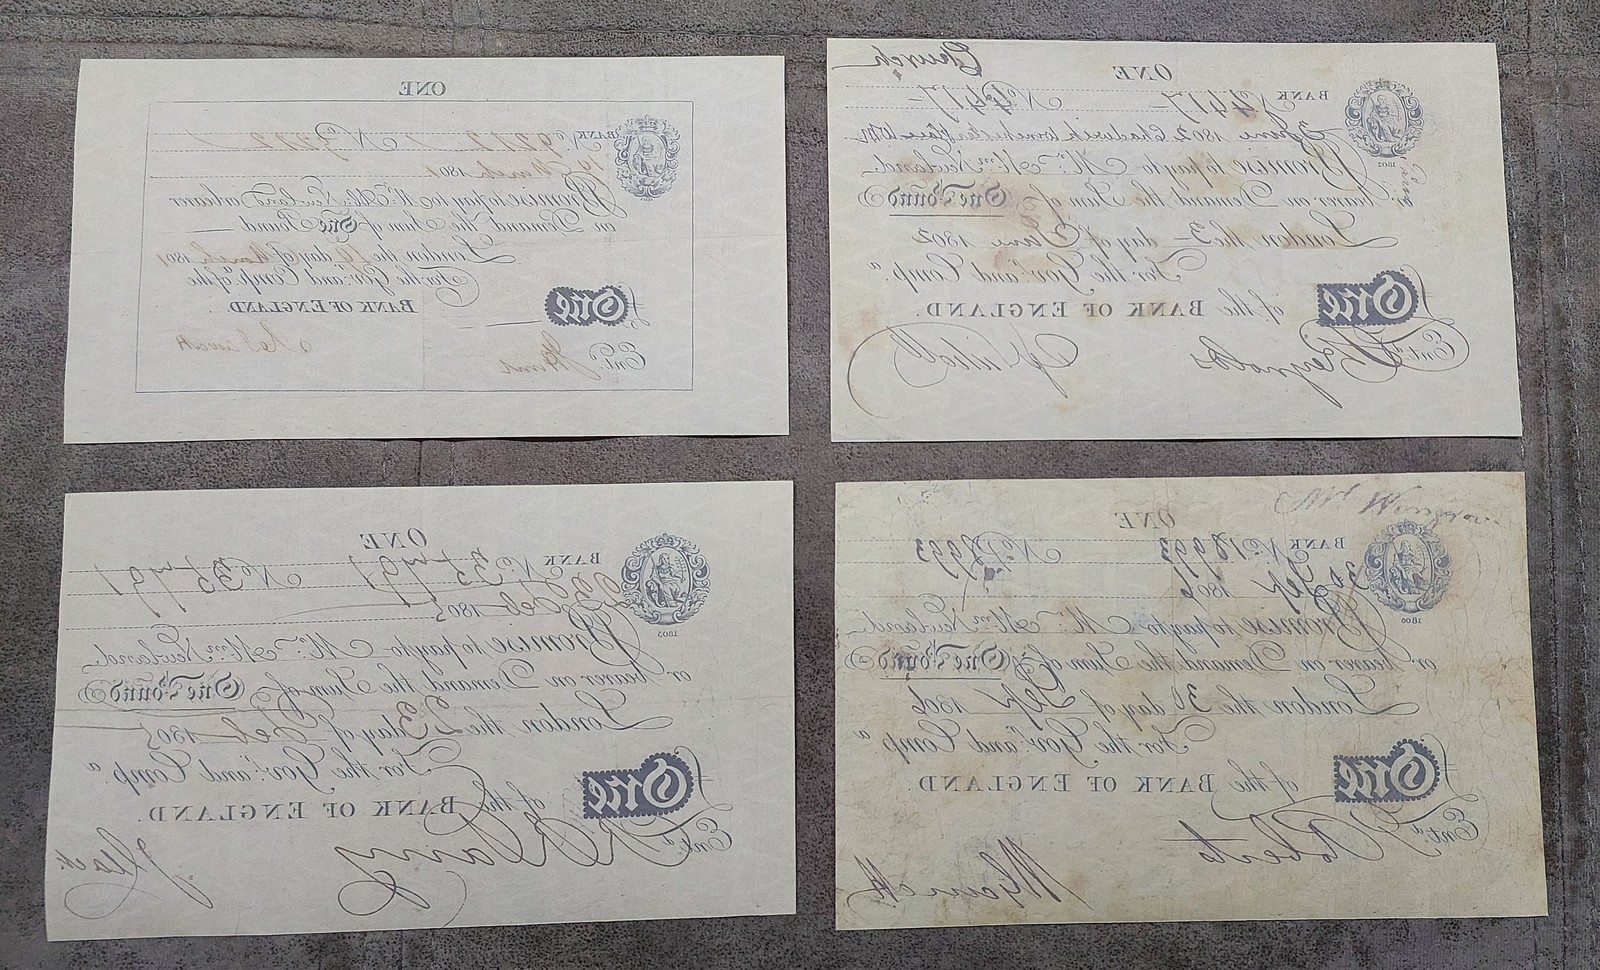 ONE
BANK No 9272 No 9272
March 1801
Promise to pay to Mr. Abm. Newland, or bearer
on Demand the Sum of One Pound
London the day of March 1801
For the Govr. and Compa. of the
BANK OF ENGLAND
£ One
Entd.
Church
ONE
BANK No 4417 No 4417
3 June 1802
Promise to pay to Mr. Abm. Newland,
or bearer on Demand the Sum of One Pound
London the 3 day of June 1802
For the Govr. and Compa.
of the BANK OF ENGLAND.
£ One
Entd. Reynolds
1802
ONE
BANK No 35791 No 35791
23 Feb 1805
Promise to pay to Mr. Abm. Newland,
or bearer on Demand the Sum of One Pound
London the 23 day of Feb 1805
For the Govr. and Compa.
of the BANK OF ENGLAND.
£ One
Entd.
1805
Mr
ONE
BANK No 18993 No 18993
30 Sep 1806
Promise to pay to Mr. Abm. Newland,
or bearer on Demand the Sum of One Pound
London the 30 day of Sep 1806
For the Govr. and Compa.
of the BANK OF ENGLAND.
£ One
Entd. Roberts
1806